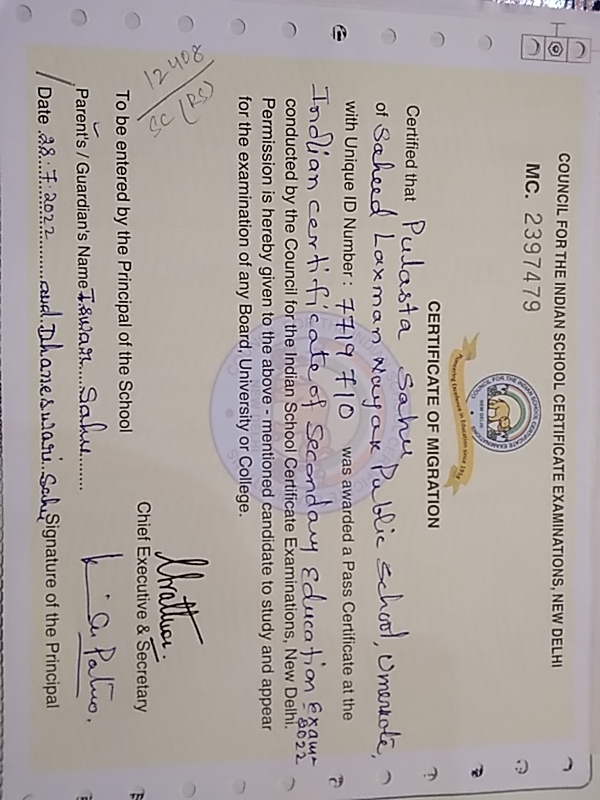 COUNCIL FOR THE INDIAN SCHOOL CERTIFICATE EXAMINATIONS, NEW DELHI
MC. 2397479
COUNCIL FOR THE INDIAN SCHOOL CERTIFICATE EXAMINATIONS
NEW DELHI
CERTIFICATE OF MIGRATION
Certified that Pulasta Sahu
of Saheed Laxman Nayak Public School, Umerkote,
with Unique ID Number : 7719710 was awarded a Pass Certificate at the
Indian certificate of Secondary Education Exam- 2022
conducted by the Council for the Indian School Certificate Examinations, New Delhi.
Permission is hereby given to the above - mentioned candidate to study and appear
for the examination of any Board, University or College.
12408
SC (RS)
Chief Executive & Secretary
To be entered by the Principal of the School
Parent's / Guardian's Name Iswar Sahu
Date 28.7.2022 and Dhaneswari Sahu Signature of the Principal